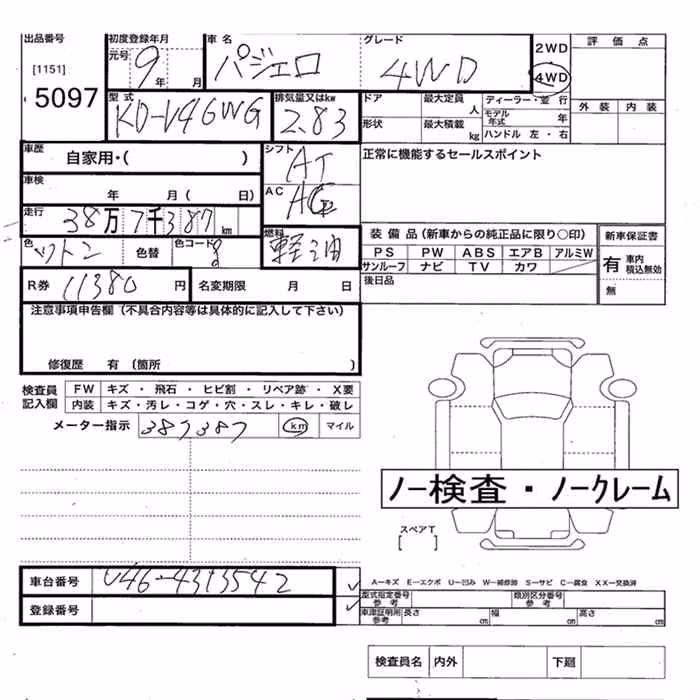 出品番号 初度登録年月 車名 グレード 評価点
[1151] 元号 9年 月 パジェロ 4WD 2WD
4WD
5097 型式 KD-V46WG 排気量又はkw 2.83 ドア 最大定員 人 ディーラー・並行 外装 内装
形状 最大積載 kg モデル年式 年
ハンドル 左・右
車歴 自家用・( ) シフト AT 正常に機能するセールスポイント
車検 年 月 ( 日) AC
走行 38万7千387km 装備品(新車からの純正品に限り○印) 新車保証書
色 ツートン 色替 色コード 燃料 軽油 PS PW ABS エアB アルミW 有 車内積込無効
サンルーフ ナビ TV カワ
R券 11380円 名変期限 月 日 後日品 無
注意事項申告欄(不具合内容等は具体的に記入して下さい)
修復歴 有(箇所 )
検査員記入欄 FW キズ・飛石・ヒビ割・リペア跡・X要
内装 キズ・汚レ・コゲ・穴・スレ・キレ・破レ
メーター指示 387387 km マイル
ノー検査・ノークレーム
スペアT
[ ]
車台番号 V46-4313542
登録番号
A−キズ E−エクボ U−凹み W−補修跡 S−サビ C−腐食 XX−交換済
型式指定番号参考 類別区分番号参考
車庫証明用参考 長さ cm 幅 cm 高さ cm
検査員名 内外 下廻